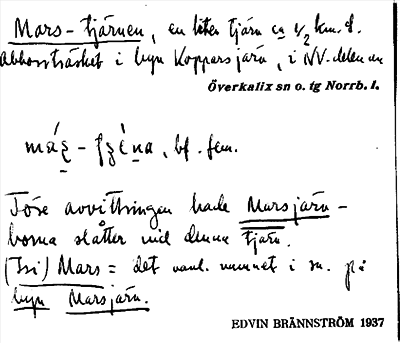 Mars-tjärnen, en liten tjärn ca 1/2 km. f.
Abborrträsket i byn Koppersjärn, i NV-delen av
Överkalix sn o. tg Norrb. l.
, bf. fem.
Före avvittringen hade Marsjärn-
borna slåtter vid denna tjärn.
Mars = det vanl. namnet i sn. på
byn Marsjärn.
EDVIN BRÄNNSTRÖM 1937